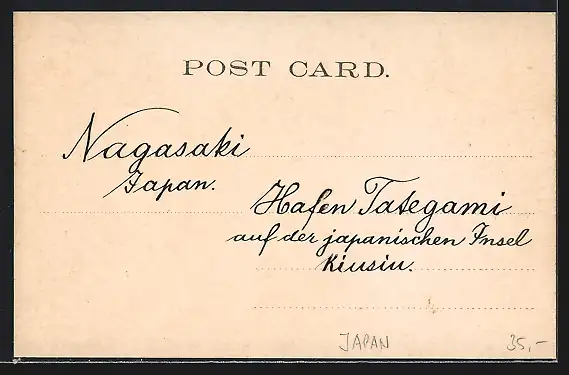 POST CARD.
Nagasaki
Japan.
Hafen Tategami
auf der japanischen Insel
Kiusiu.
JAPAN 35,-